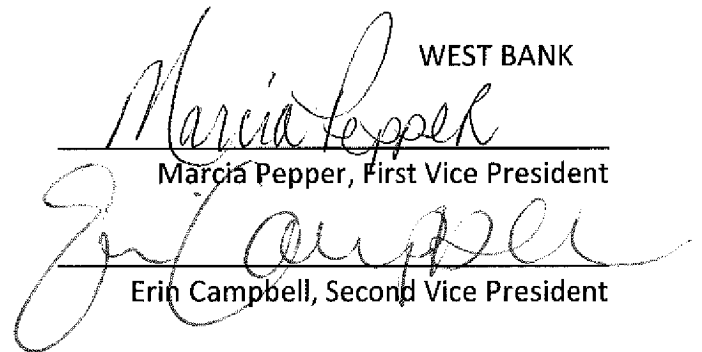 WEST BANK
Marcia Pepper
Marcia Pepper, First Vice President
Erin Campbell
Erin Campbell, Second Vice President